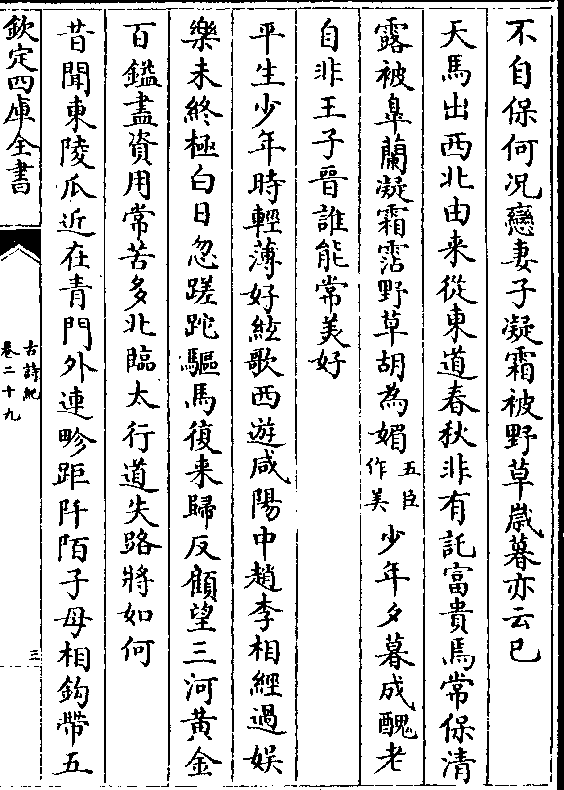 不自保何况戀妻子凝霜被野草嵗暮亦云已
天馬出西北由来從東道春秋非有託富貴焉常保清
露被皐蘭凝霜霑野草胡為媚五臣作美少年夕暮成醜老
自非王子晉誰能常美好
平生少年時輕薄好絃歌西遊咸陽中趙李相經過娛
樂未終極白日忽蹉跎驅馬復来歸反顧望三河黄金
百鎰盡資用常苦多北臨太行道失路將如何
昔聞東陵瓜近在青門外連畛距阡陌子母相鈎帶五
欽定四庫全書
古詩紀
卷二十九
三